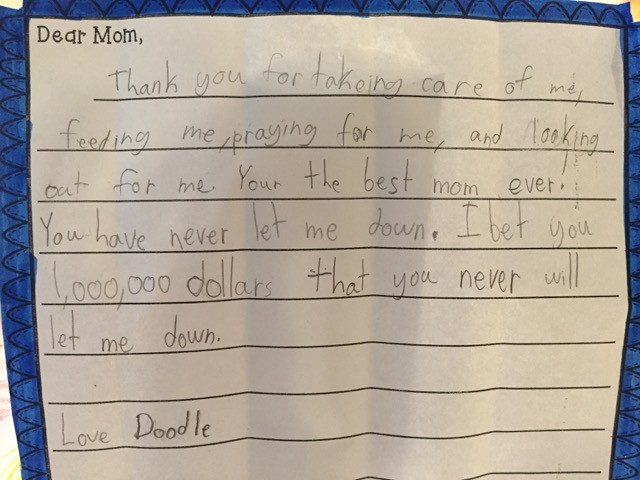 Dear Mom,
Thank you for takeing care of me,
feeding me, praying for me, and looking
out for me. Your the best mom ever!
You have never let me down. I bet you
1,000,000 dollars that you never will
let me down.
Love Doodle